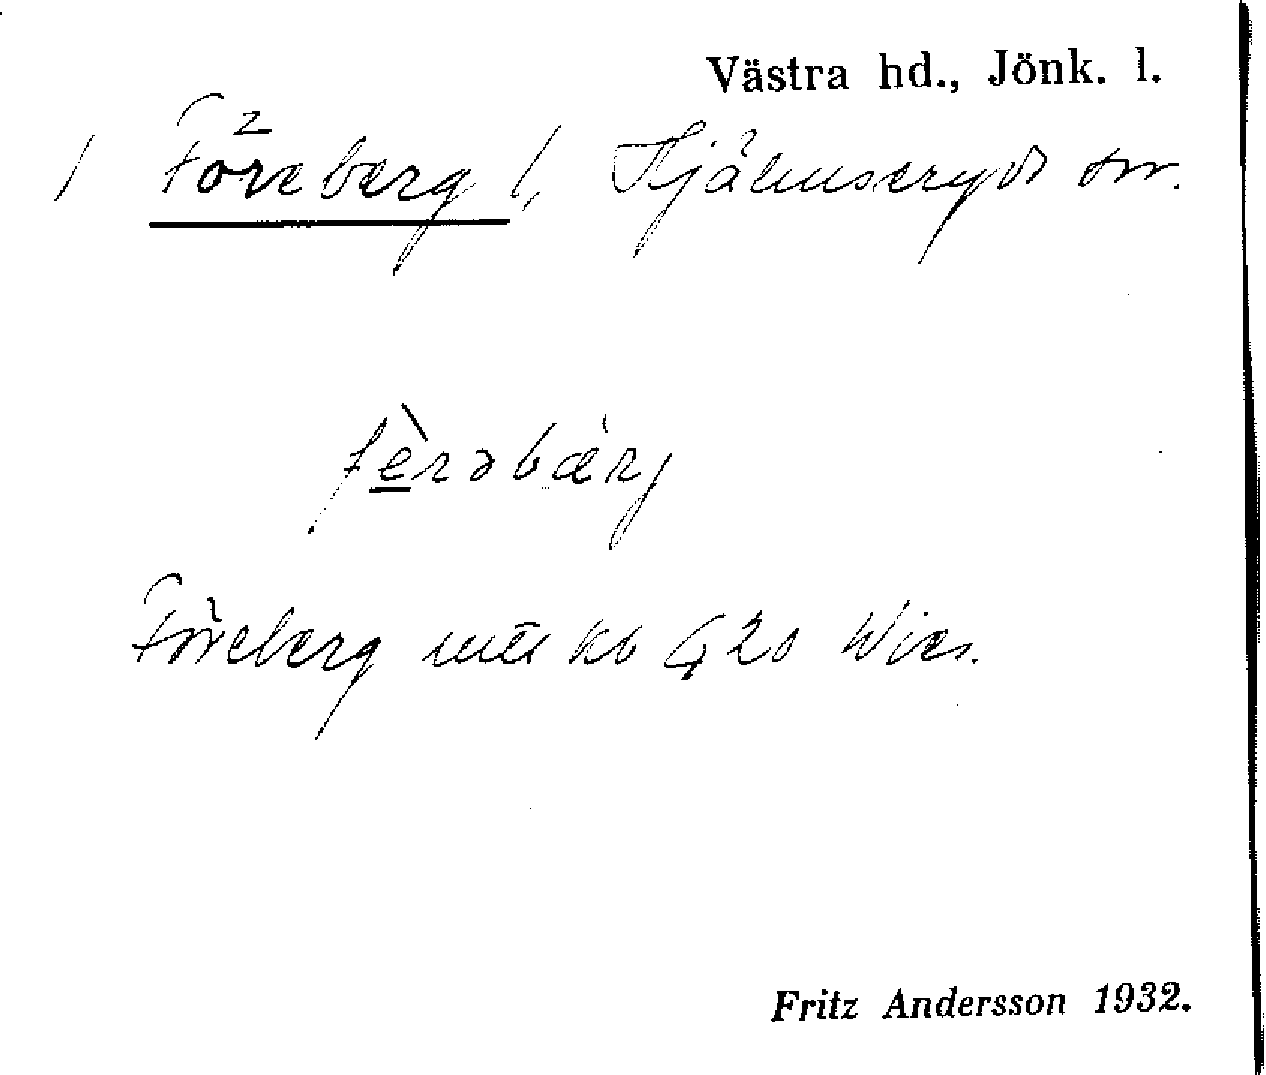 Västra hd., Jönk. l.
/ Föreberg l, Hjälmseryds sn.
fèrəbærj
Föreberg
Fritz Andersson 1932.